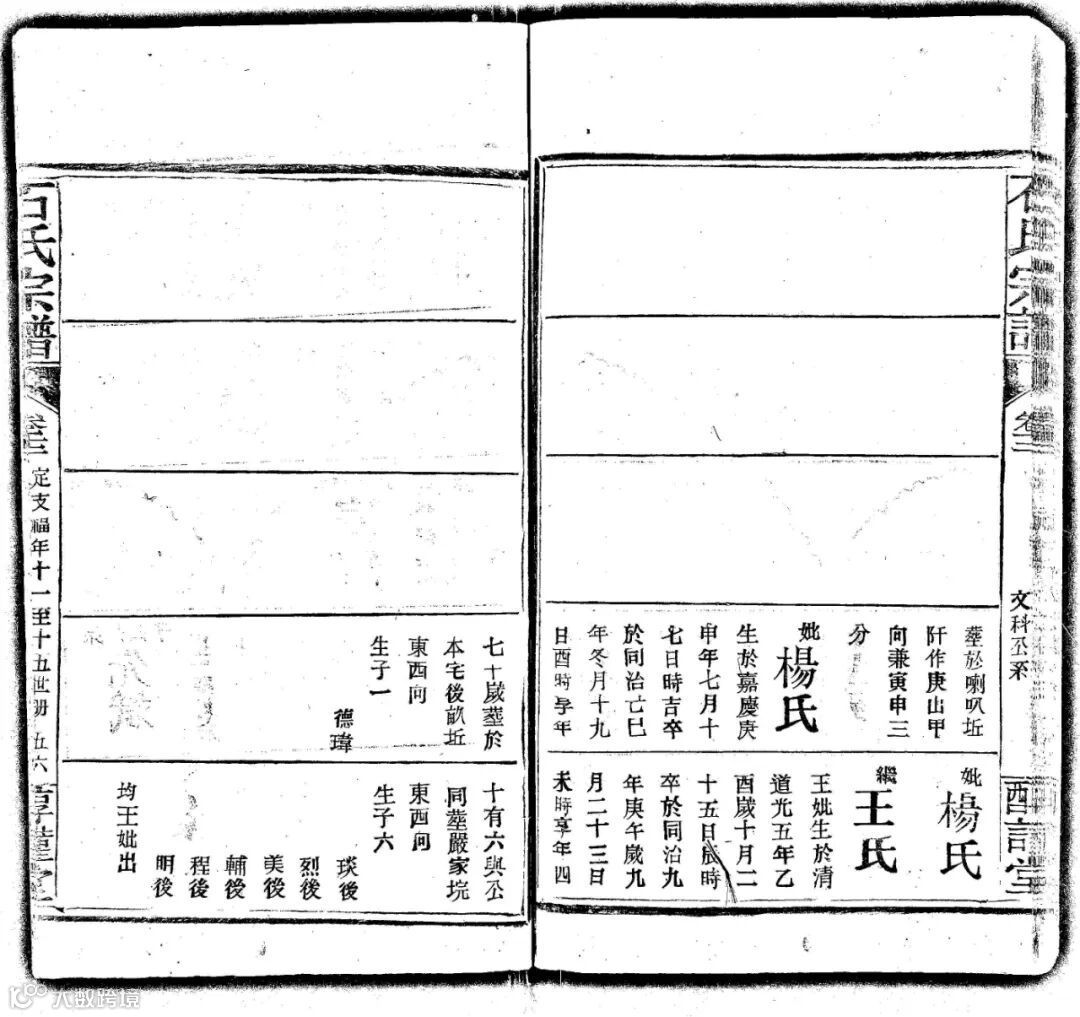 石氏宗譜
卷三
文科公系
葬於喇叭坵
阡作庚山甲
向兼寅申三
分
妣楊氏
生於嘉慶庚
申年七月十
七日時吉卒
於同治己巳
年冬月十九
日酉時享年
妣楊氏
繼王氏
王妣生於清
道光五年乙
酉歲十月二
十五日辰時
卒於同治九
年庚午歲九
月二十三日
未時享年四
七十歲葬於
本宅後畝坵
東西向
生子一
德瑋
十有六與公
同葬嚴家垸
東西向
生子六
琰後
烈後
美後
輔後
程後
明後
均王妣出
石氏宗譜
卷三
定支福年十一至十五世册
五六
大数跨境